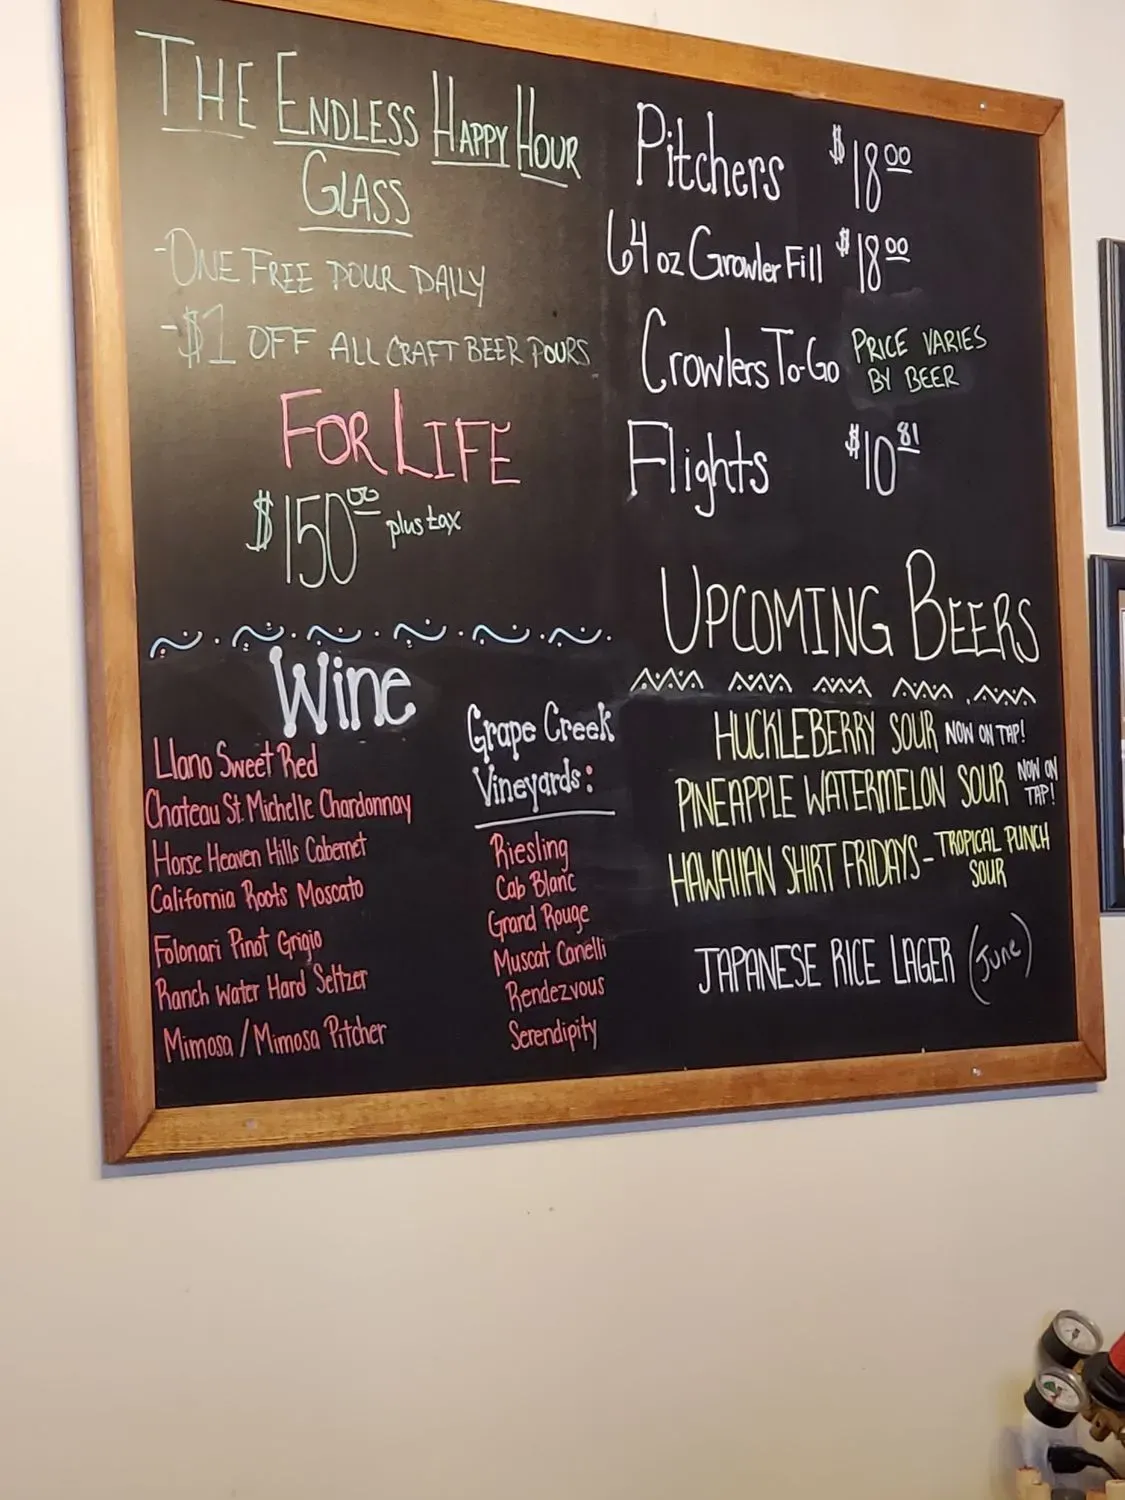 THE ENDLESS HAPPY HOUR
GLASS
-ONE FREE POUR DAILY
-$1 OFF ALL CRAFT BEER POURS
FOR LIFE
$150.00 plus tax
Wine
Llano Sweet Red
Chateau St. Michelle Chardonnay
Horse Heaven Hills Cabernet
California Roots Moscato
Folonari Pinot Grigio
Ranch Water Hard Seltzer
Mimosa / Mimosa Pitcher
Grape Creek
Vineyards:
Riesling
Cab Blanc
Grand Rouge
Muscat Canelli
Rendezvous
Serendipity
Pitchers $18 00
64 oz Growler Fill $18 00
Crowlers To-Go PRICE VARIES
BY BEER
Flights $10 81
UPCOMING BEERS
HUCKLEBERRY SOUR NOW ON TAP!
PINEAPPLE WATERMELON SOUR NOW ON
TAP!
HAWAIIAN SHIRT FRIDAYS - TROPICAL PUNCH
SOUR
JAPANESE RICE LAGER (June)